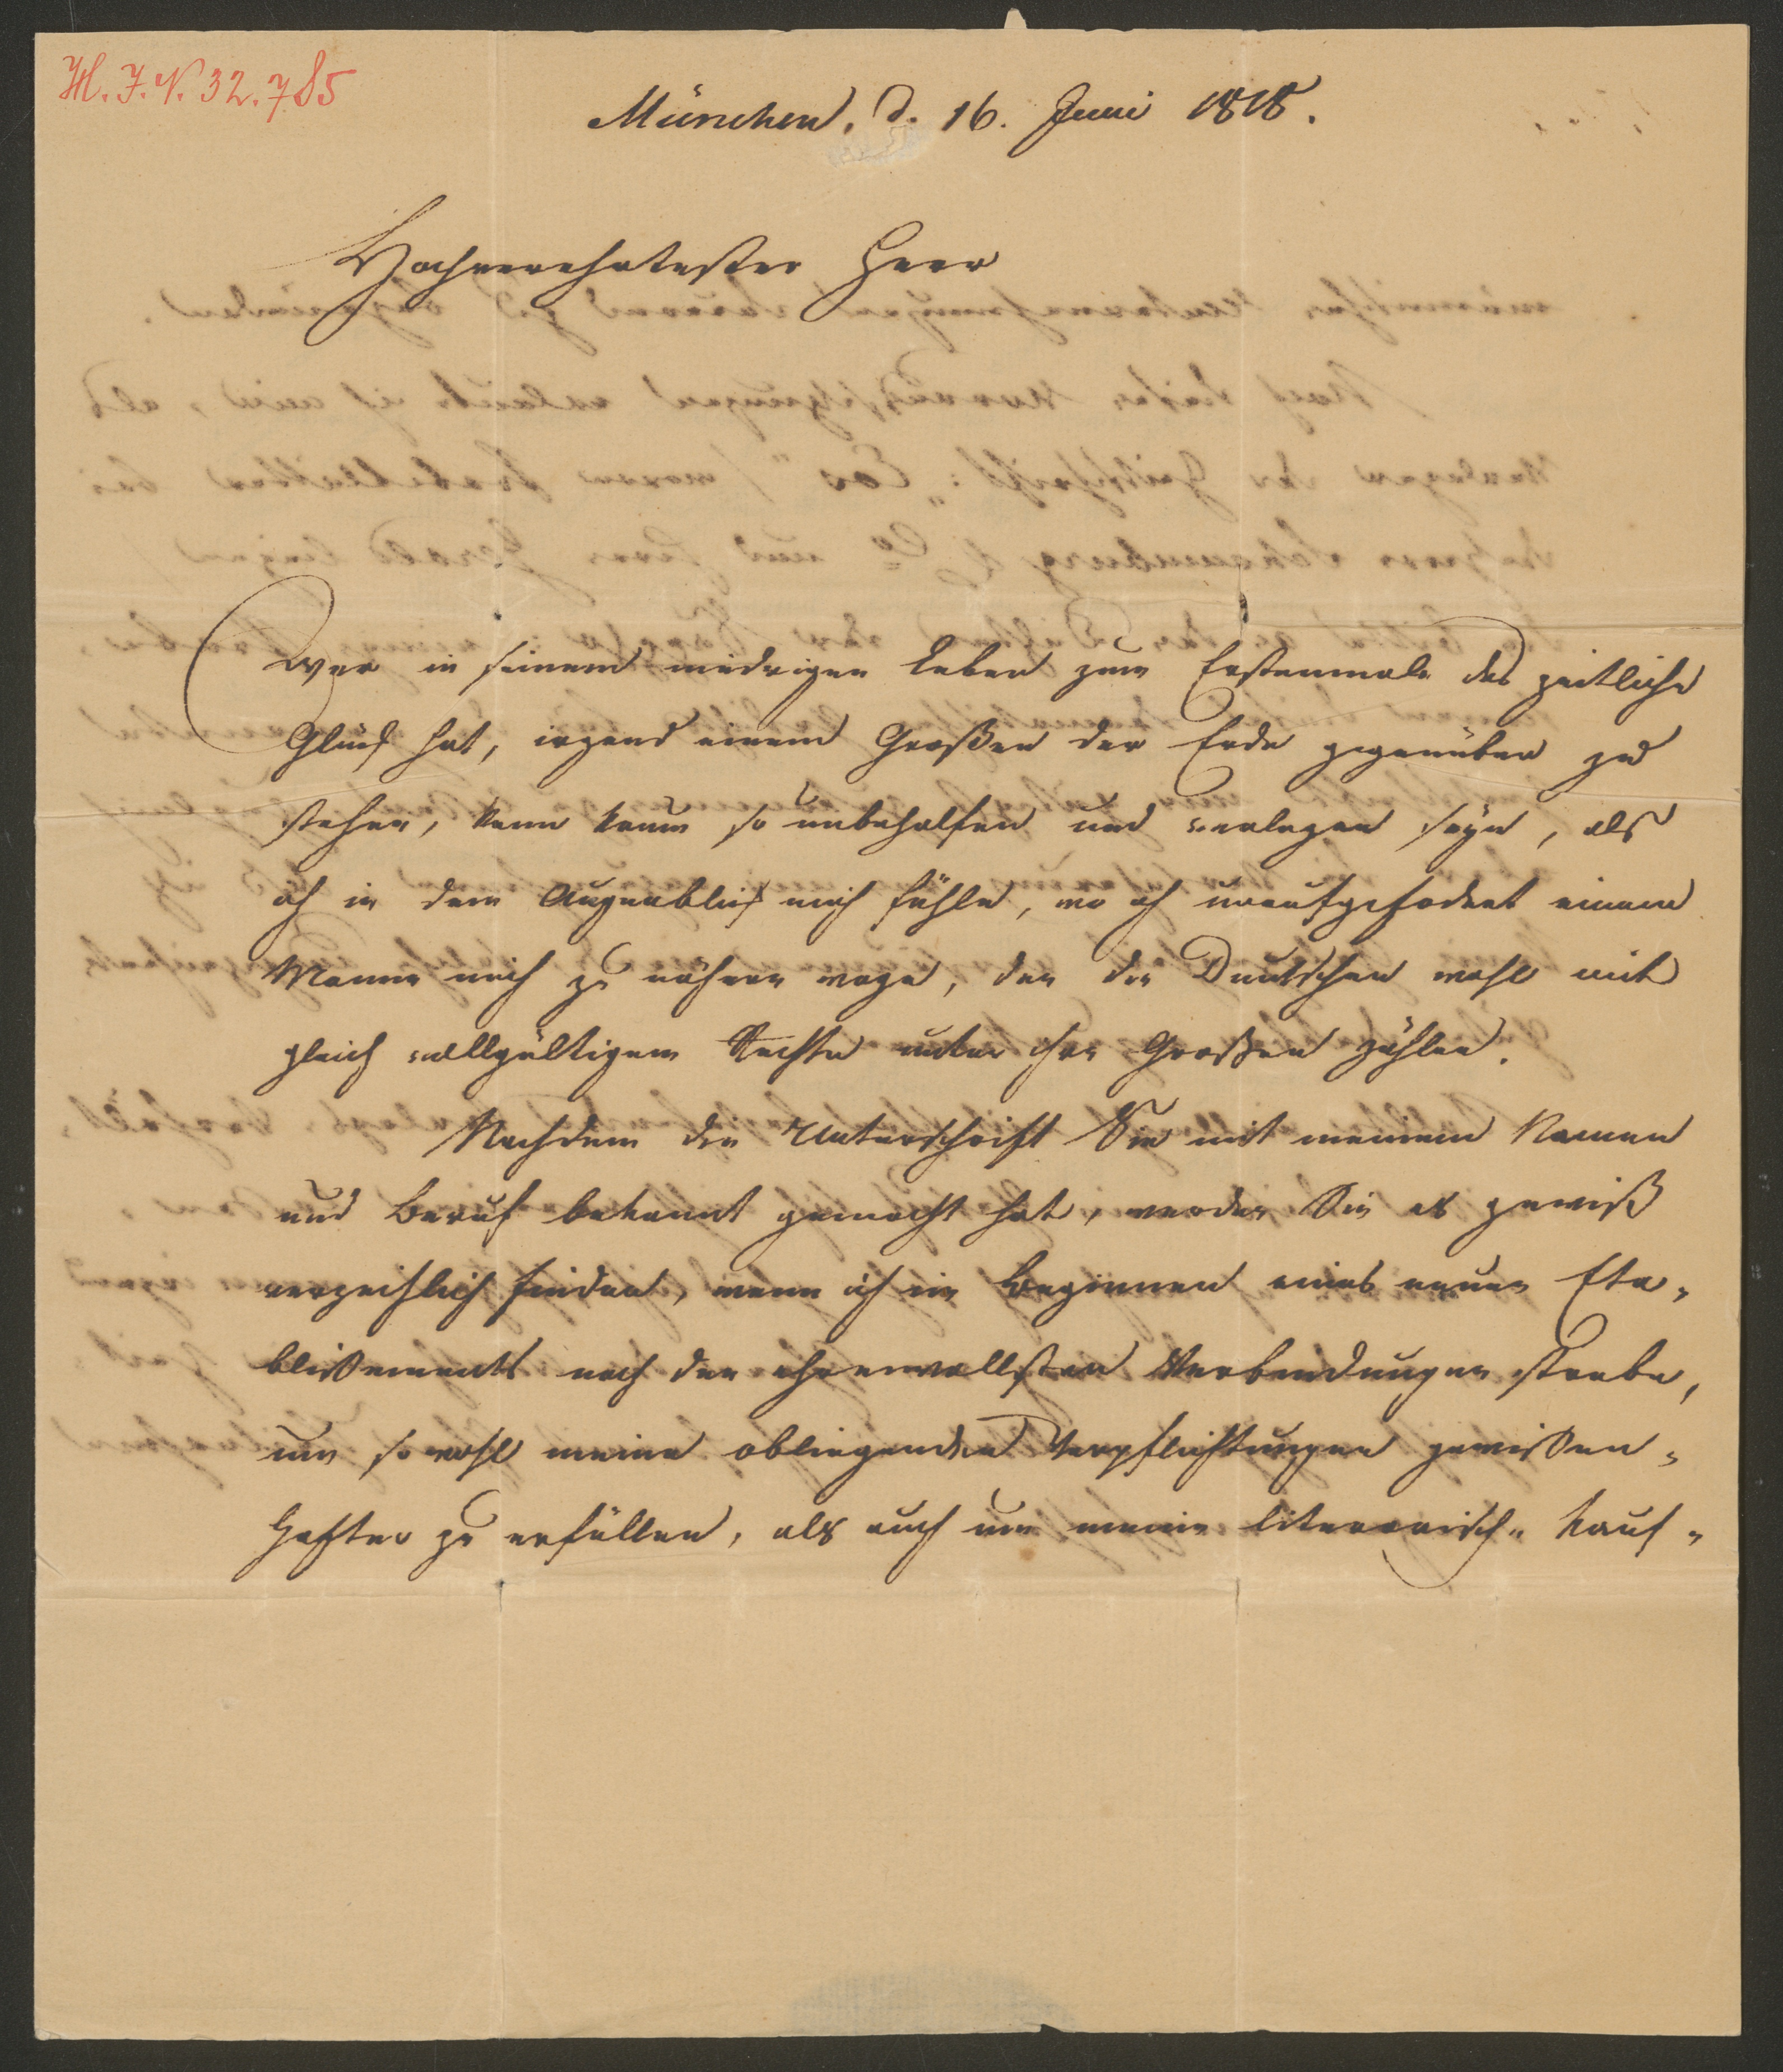 H. I. N. 32.785
München, d. 16. Juni 1818.
Hochverehrtester Herr
Wer in seinem niedrigen Leben zum Erstenmale das zeitliche
Glück hat, irgend einem Großen der Erde gegenüber zu
stehen, kann kaum so unbeholfen und verlegen seyn, als
ich in dem Augenblick mich fühle, wo ich unaufgefodert einem
Manne mich zu nähern wage, den die Deutschen wohl mit
gleich vollgültigem Rechte unter ihre Großen zählen.
Nachdem die Unterschrift Sie mit meinem Namen
und Beruf bekannt gemacht hat, werden Sie es gewiß
verzeihlich finden, wenn ich im Beginnen eines neuen Eta-
blißements nach den ehrenvollsten Verbindungen strebe,
um sowohl meine obliegenden Verpflichtungen gewißen-
hafter zu erfüllen, als auch um meine literarisch-kauf-